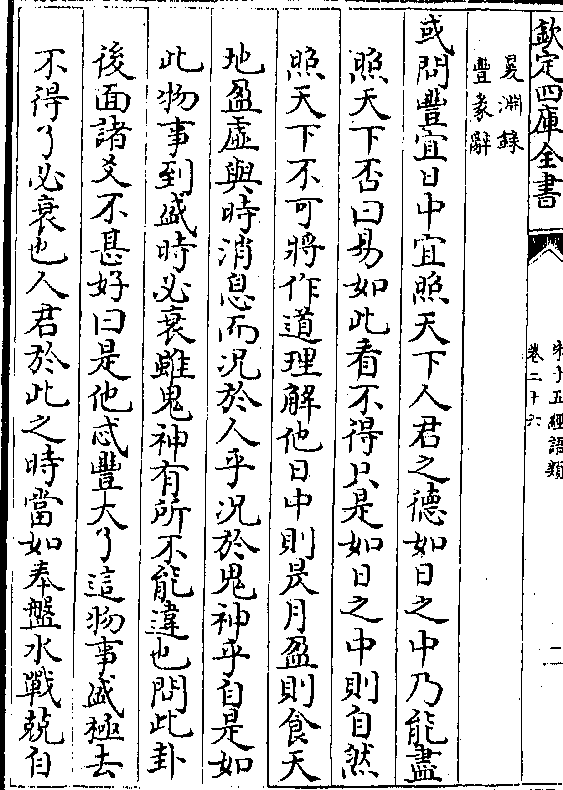 欽定四庫全書
朱子五經語類
卷二十六
二
㬊淵錄
豐彖辭
或問豐宜日中宜照天下人君之德如日之中乃能盡
照天下否曰易如此看不得只是如日之中則自然
照天下不可將作道理解他日中則昃月盈則食天
地盈虛與時消息而況於人乎況於鬼神乎自是如
此物事到盛時必衰雖鬼神有所不能違也問此卦
後面諸爻不甚好曰是他忒豐大了這物事盛極去
不得了必衰也人君於此之時當如奉盤水戰兢自